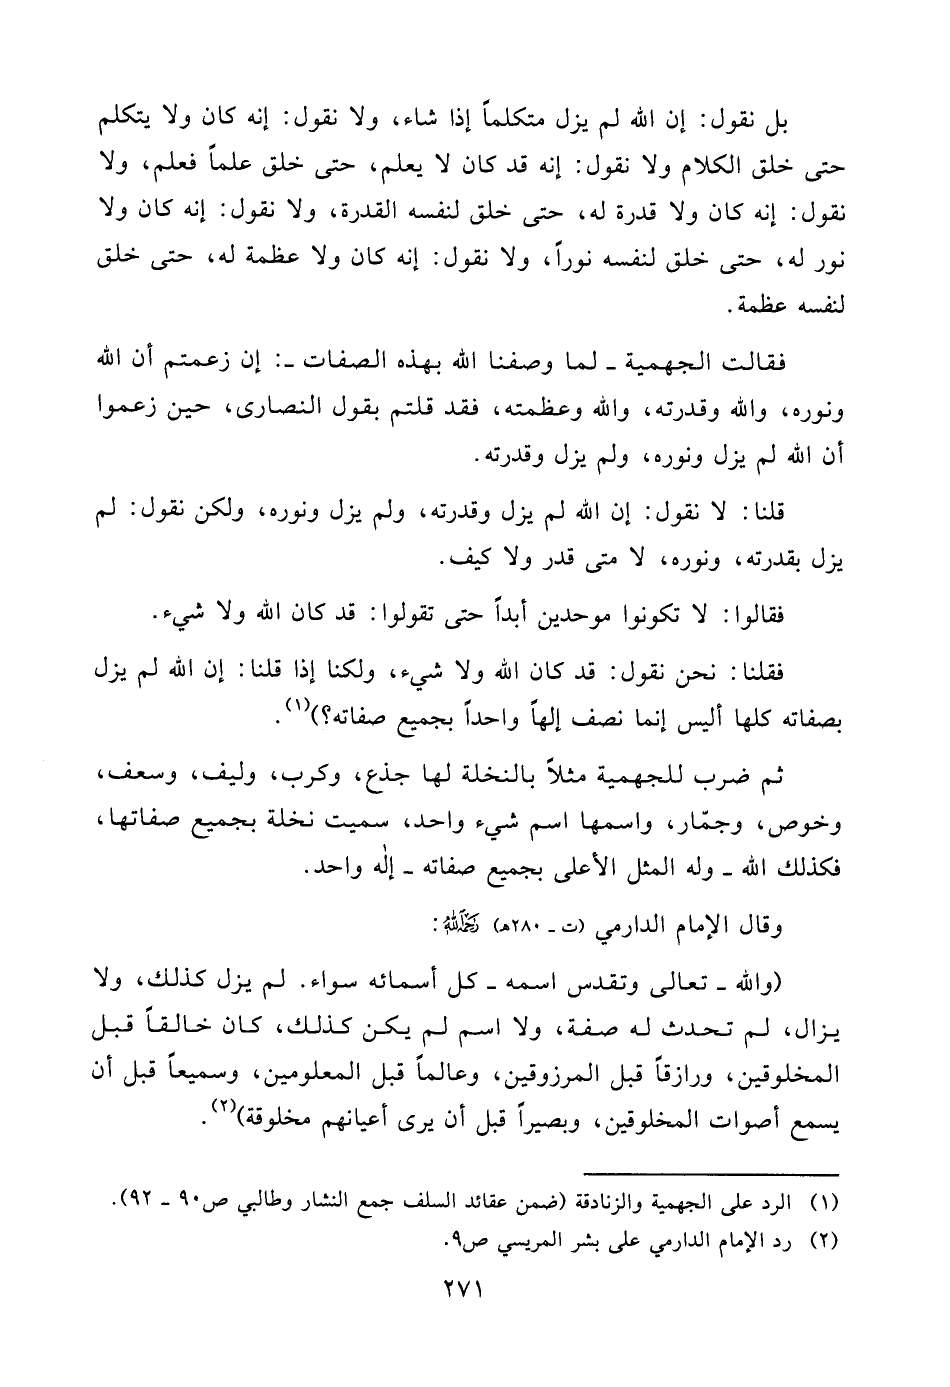 بل نقول: إن الله لم يزل متكلماً إذا شاء، ولا نقول: إنه كان ولا يتكلم
حتى خلق الكلام ولا نقول: إنه قد كان لا يعلم، حتى خلق علماً فعلم، ولا
نقول: إنه كان ولا قدرة له، حتى خلق لنفسه القدرة، ولا نقول: إنه كان ولا
نور له، حتى خلق لنفسه نوراً، ولا نقول: إنه كان ولا عظمة له، حتى خلق
لنفسه عظمة.
فقالت الجهمية ـ لما وصفنا الله بهذه الصفات ـ: إن زعمتم أن الله
ونوره، والله وقدرته، والله وعظمته، فقد قلتم بقول النصارى، حين زعموا
أن الله لم يزل ونوره، ولم يزل وقدرته.
قلنا: لا نقول: إن الله لم يزل وقدرته، ولم يزل ونوره، ولكن نقول: لم
يزل بقدرته، ونوره، لا متى قدر ولا كيف.
فقالوا: لا تكونوا موحدين أبداً حتى تقولوا: قد كان الله ولا شيء.
فقلنا: نحن نقول: قد كان الله ولا شيء، ولكنا إذا قلنا: إن الله لم يزل
بصفاته كلها أليس إنما نصف إلهاً واحداً بجميع صفاته؟)(١).
ثم ضرب للجهمية مثلاً بالنخلة لها جذع، وكرب، وليف، وسعف،
وخوص، وجمّار، واسمها اسم شيء واحد، سميت نخلة بجميع صفاتها،
فكذلك الله ـ وله المثل الأعلى بجميع صفاته ـ إلٰه واحد.
وقال الإمام الدارمي (ت ـ ٢٨٠هـ) رحمه الله:
(والله ـ تعالى وتقدس اسمه ـ كل أسمائه سواء. لم يزل كذلك، ولا
يزال، لم تحدث له صفة، ولا اسم لم يكن كذلك، كان خالقاً قبل
المخلوقين، ورازقاً قبل المرزوقين، وعالماً قبل المعلومين، وسميعاً قبل أن
يسمع أصوات المخلوقين، وبصيراً قبل أن يرى أعيانهم مخلوقة)(٢).
(١) الرد على الجهمية والزنادقة (ضمن عقائد السلف جمع النشار وطالبي ص٩٠ ـ ٩٢).
(٢) رد الإمام الدارمي على بشر المريسي ص٩.
٢٧١